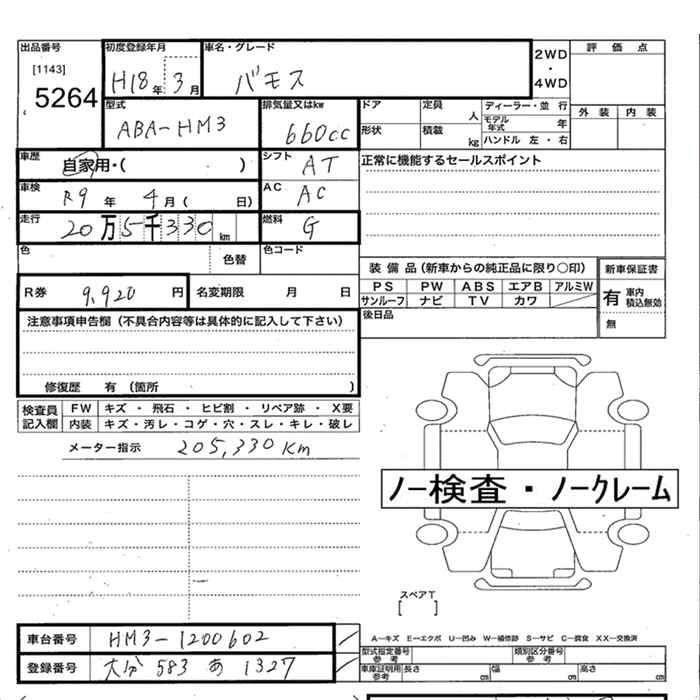 出品番号 初度登録年月 車名・グレード 2WD・4WD 評価点
[1143] 5264 H18年 3月 バモス
型式 排気量又はkw ドア 定員 人 ディーラー・並行 外装 内装
ABA-HM3 660cc 形状 積載 kg モデル年式 年 ハンドル 左・右
車歴 自家用・( ) シフト AT 正常に機能するセールスポイント
車検 R9年 4月( 日) AC AC
走行 20万5千330km 燃料 G
色 色替 色コード
装備品(新車からの純正品に限り〇印) 新車保証書
R券 9,920円 名変期限 月 日 PS PW ABS エアB アルミW 有 車内積込無効
サンルーフ ナビ TV カワ
注意事項申告欄(不具合内容等は具体的に記入して下さい) 後日品 無
修復歴 有(箇所 )
検査員記入欄 FW キズ・飛石・ヒビ割・リペア跡・X要
内装 キズ・汚レ・コゲ・穴・スレ・キレ・破レ
メーター指示 205,330Km
ノー検査・ノークレーム
スペアT
[ ]
車台番号 HM3-1200602 A-キズ E-エクボ U-凹み W-補修跡 S-サビ C-腐食 XX-交換済
型式指定番号 参考 類別区分番号 参考
登録番号 大分 583 あ 1327 車庫証明用参考 長さ cm 幅 cm 高さ cm